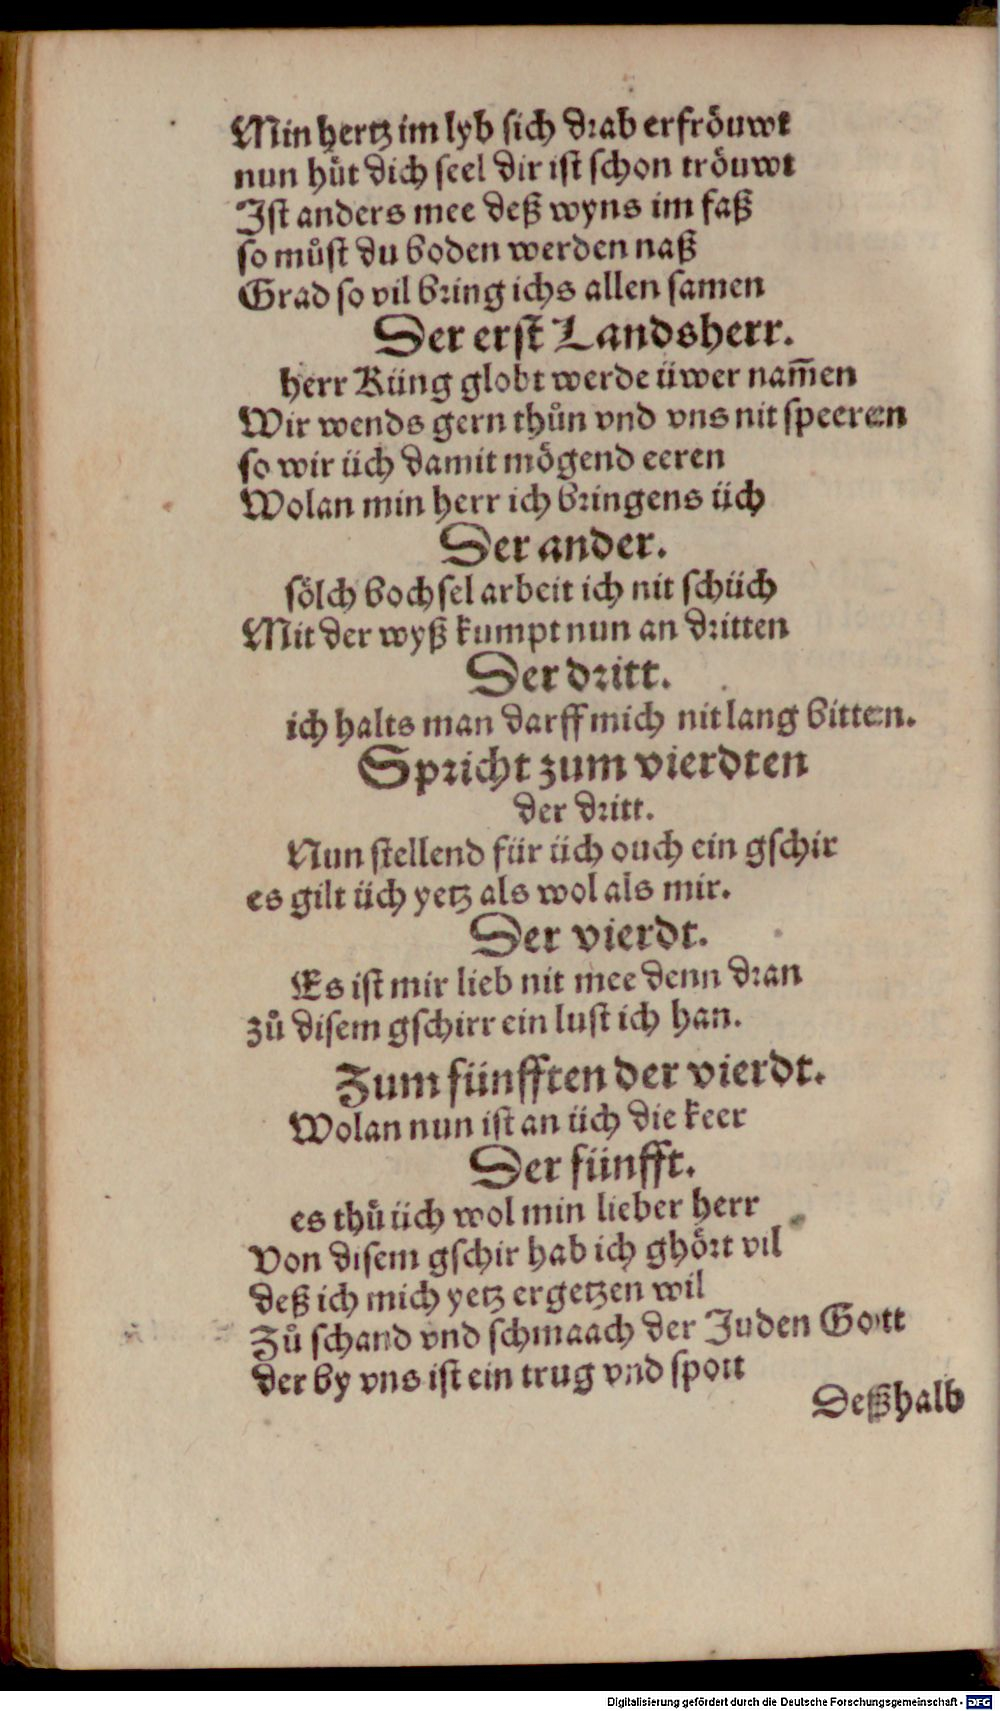 Min hertz im lyb sich drab erfröuwt
nun hůt dich seel dir ist schon tröuwt
Ist anders mee deß wyns im faß
so můst du boden werden naß
Grad so vil bring ichs allen samen
Der erst Landsherr.
herr Küng globt werde üwer nam̄en
Wir wends gern thůn vnd vns nit speeren
so wir üch damit mögend eeren
Wolan min herr ich bringens üch
Der ander.
sölch bochsel arbeit ich nit schüch
Mit der wyß kumpt nun an dritten
Der dritt.
ich halts man darff mich nit lang bitten.
Spricht zum vierdten
der dritt.
Nun stellend für üch ouch ein gschir
es gilt üch yetz als wol als mir.
Der vierdt.
Es ist mir lieb nit mee denn dran
zů disem gschirr ein lust ich han.
Zum fünfften der vierdt.
Wolan nun ist an üch die keer
Der fünfft.
es thů üch wol min lieber herr
Von disem gschir hab ich ghört vil
deß ich mich yetz ergetzen wil
Zů schand vnd schmaach der Juden Gott
der by vns ist ein trug vnd spott
Deßhalb
Digitalisierung gefördert durch die Deutsche Forschungsgemeinschaft - DFG